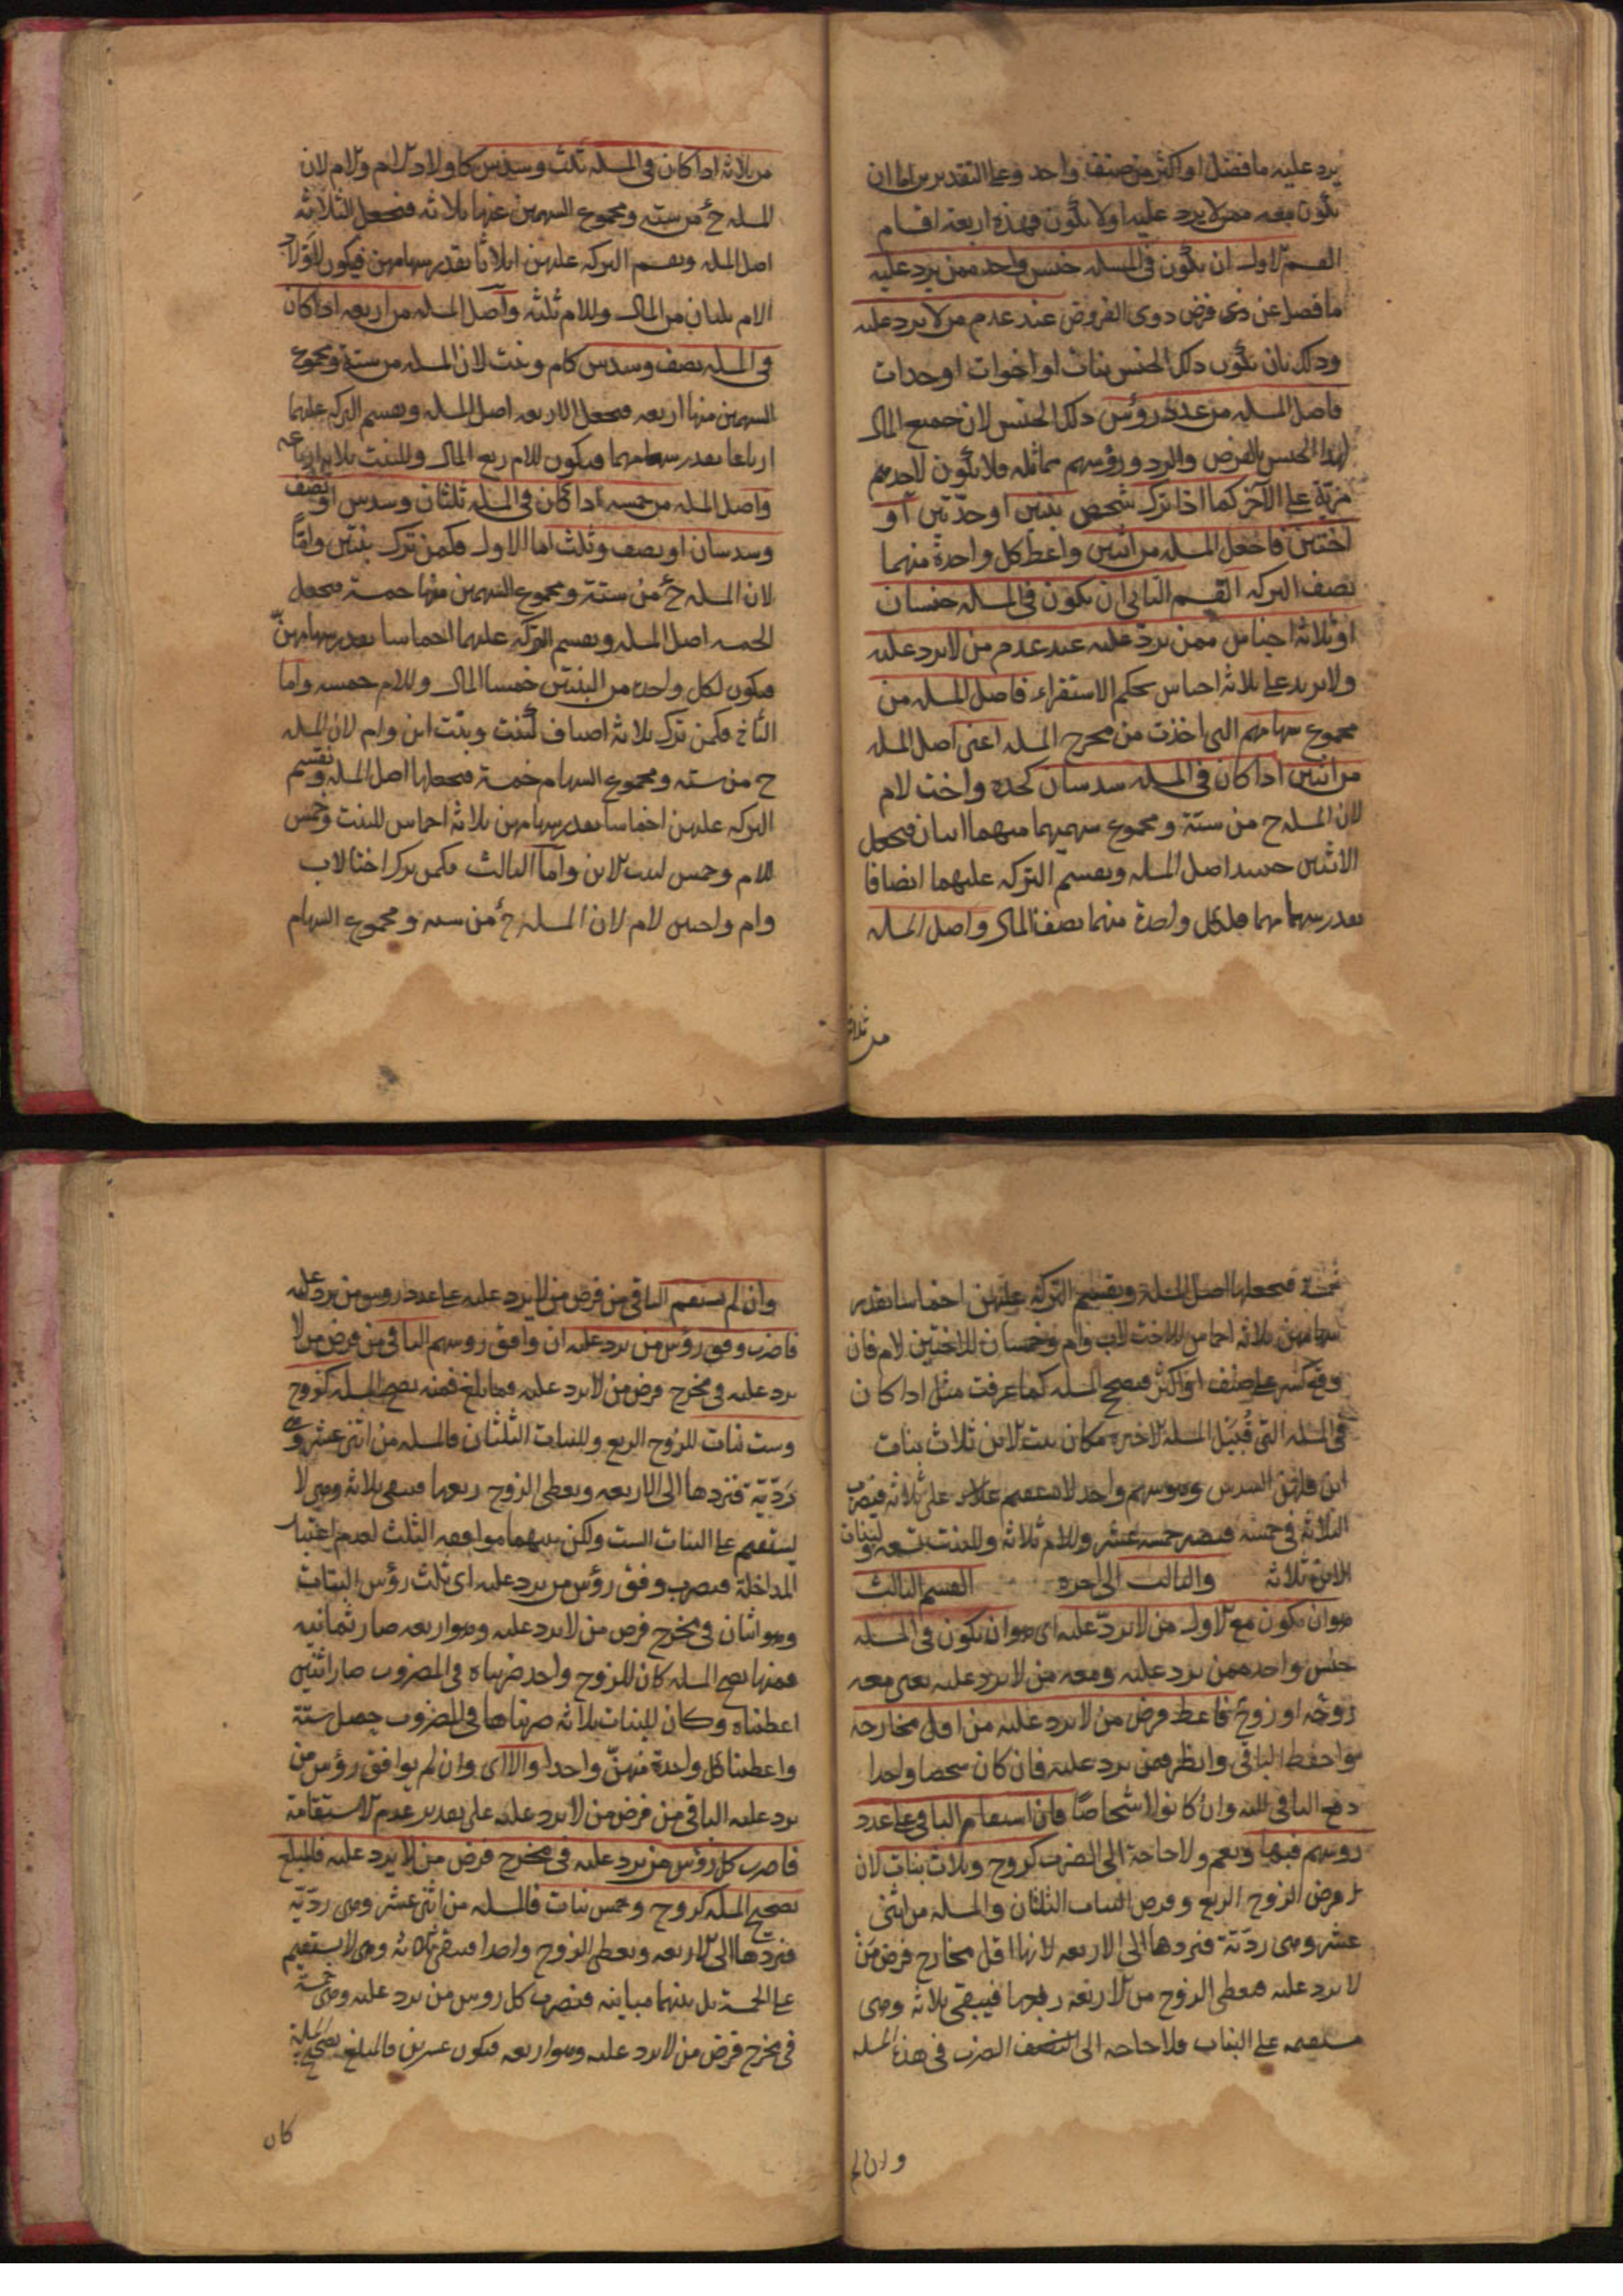 يرد عليه ما فضل او اكثر من صنف واحد وعلى التقديرين اما ان
يكون معه ممن لا يرد عليه اولا يكون فهذه اربعة اقسام
القسم الاول ان يكون في المسله جنس واحد ممن يرد عليه
ما فضل عن ذي فرض ذوي الفروض عند عدم من لا يرد عليه
وذلك بان يكون ذلك الجنس بنات او اخوات او جدات
فاصل المسله من عدد رؤس ذلك الجنس لان جميع المال
لهذا الجنس بالفرض والرد ورؤسهم مماثله فلا يكون لاحدهم
مزيّة على الآخر كما اذا ترك شخص بنتين او جدّتين أو
اختين فاجعل المسله من اثنين واعط كل واحدة منهما
نصف التركه القسم الثاني ان يكون في المسله جنسان
او ثلاثة اجناس ممن يردّ عليه عند عدم من لا يرد عليه
ولا يزيد على ثلاثة اجناس بحكم الاستقراء فاصل المسله من
مجموع سهامهم التي اخذت من مخرج المسله اعني اصل المسله
من اثنين اذا كان في المسله سدسان كجده واخت لام
لان المسله ح من ستة ومجموع سهميهما منهما اثنان فيجعل
الاثنين حينئذ اصل المسله ويقسم التركه عليهما انصافا
بقدر سهامهما فلكل واحدة منهما نصف المال واصل المسله
من ثلاثة
من ثلاثة اذا كان في المسله ثلث وسدس كاولاد الام والام لان
المسله ح من ستة ومجموع السهمين عنها ثلاثة فنجعل الثلاثة
اصل المسله ويقسم التركه عليهن اثلاثا بقدر سهامهن فيكون لاولاد
الام ثلثان من المال وللام ثلثه وأصل المسله من اربعه اذا كان
في المسله نصف وسدس كام وبنت لان المسله من ستة ومجموع
السهمين منها اربعه فنجعل الاربعه اصل المسله ويقسم التركه عليهما
ارباعا بقدر سهامهما فيكون للام ربع المال وللبنت ثلاثة ارباعه
واصل المسله من خمسه اذا كان في المسله ثلثان وسدس او نصف
وسدسان او نصف وثلث اما الاول فكمن ترك بنتين وامّا
لان المسله ح من ستة ومجموع السهمين منها خمسة فيجعل
الخمسه اصل المسله ويقسم التركه عليهما اخماسا بقدر سهامهنّ
فيكون لكل واحدة من البنتين خمسا المال وللام خمسه واما
الثاني فكمن ترك ثلاثة اصناف كبنت وبنت ابن وام لان المسله
ح من سته ومجموع السهام خمسة فنجعلها اصل المسله ونقسم
التركه عليهن اخماسا بقدر سهامهن ثلاثة اخماس للبنت وخمس
للام وخمس لبنت الابن وأما الثالث فكمن ترك اختا لاب
وام واختين لام لان المسله ح من سته ومجموع السهام
خمسة فنجعلها اصل المسلة ونقسم التركة عليهن اخماسا بقدر
سهامهن ثلاثه اخماس للاخت لاب وام وخمسان للاختين لام فان
وقع كسر على صنف او اكثر فيصح المسله كما عرفت مثل اذا كان
في المسله التي قُبَيْل المسله الاخيره مكان بنت الابن ثلاث بنات
ابن فلهن السدس وهو سهم واحد لا يستقيم على ثلاثة فيضرب
الثلاثة في خمسه فيصير خمسه عشر وللام ثلاثة وللبنت تسعه ولبنات
الابن ثلاثة والثالث الى اخره القسم الثالث
هو ان يكون مع الاول من لا يردّ عليه اى هو ان يكون في المسله
جنس واحد ممن يرد عليه ومعه من لا يرد عليه يعني معه
زوجة او زوج فاعط فرض من لا يرد عليه من اقل مخارجه
واحفظ الباقي وانظر فيمن يرد عليه فان كان شخصا واحدا
دفع الباقي اليه وان كانوا اشخاصًا فان استقام الباقي على عدد
رؤسهم فبها ونعم ولا حاجة الى الضرب كزوج وثلاث بنات لان
فرض الزوج الربع وفرض البنات الثلثان والمسله من اثني
عشر وهي ردّيّة فنردها الى الاربعه لانها اقل مخارج فرض من
لا يرد عليه فيعطى الزوج من الاربعة ربعها فيبقى ثلاثة وهي
مستقيمه على البنات فلا حاجه الى الضرب في هذه المسله
وان لم
وان لم يستقم الباقي من فرض من لا يرد عليه على عدد رؤس من يرد عليه
فاضرب وفق رؤس من يرد عليه ان وافق روسهم الباقي من فرض من لا
يرد عليه في مخرج فرض من لا يرد عليه فما بلغ فمنه تصح المسله كزوج
وست بنات للزوج الربع وللبنات الثلثان فالمسله من اثني عشر وهي
ردّيّة فنردها الى الاربعه ويعطى الزوج ربعها فيبقى ثلاثة وهي لا
يستقيم على البنات الست ولكن بينهما موافقه الثلث لعدم اعتبار
المداخلة فيضرب وفق رؤس من يرد عليه اى ثلث رؤس البنات
وهو اثنان في مخرج فرض من لا يرد عليه وهو اربعه صار ثمانيه
فمنها تصح المسله كان للزوج واحد ضربناه في المضروب صار اثنين
اعطيناه وكان للبنات ثلاثة ضربناها في المضروب حصل ستة
واعطينا كل واحدة منهنّ واحدا والا اى وان لم يوافق رؤس من
يرد عليه الباقي من فرض من لا يرد عليه على تقدير عدم الاستقامة
فاضرب كل رؤس من يرد عليه في مخرج فرض من لا يرد عليه فالمبلغ
تصحيح المسله كزوج وخمس بنات فالمسله من اثني عشر وهي ردّيّة
فنردها الى الاربعه ويعطى الزوج واحدا فيبقى ثلاثة وهي لا يستقيم
على الخمسة بل بينهما مباينه فيضرب كل رؤس من يرد عليه وهي خمسة
في مخرج فرض من لا يرد عليه وهو اربعه فيكون عشرين فالمبلغ تصحيح المسله
كان